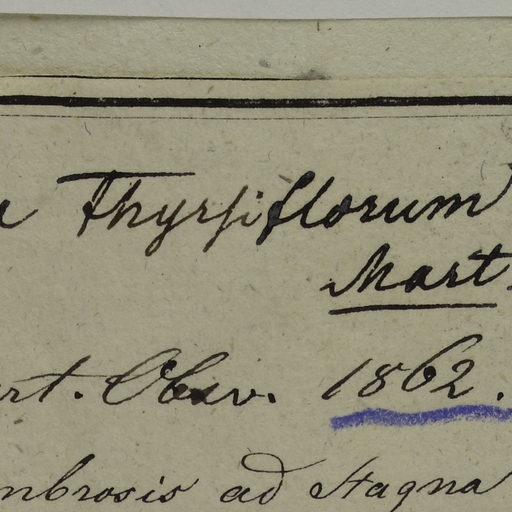 a Thyrsiflorum
Mart.
rt. Obsv. 1862.
mbrosis ad stagna